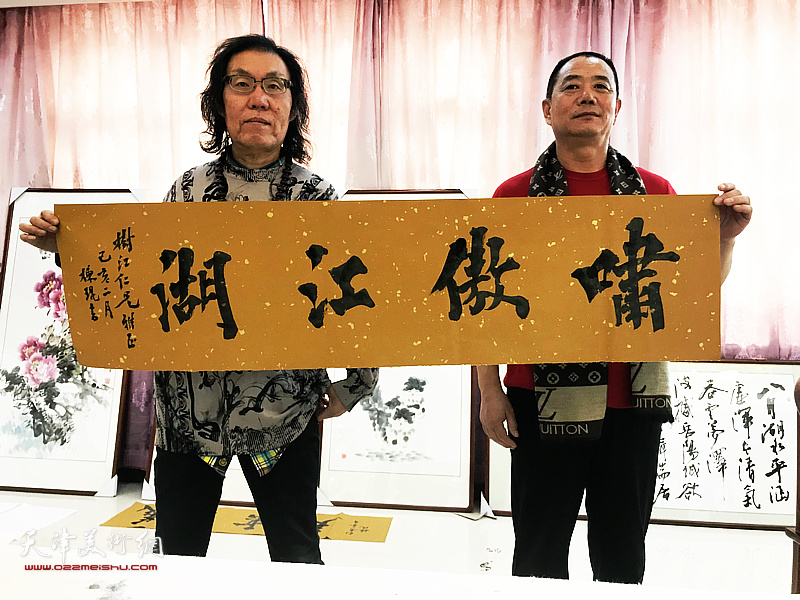 嘯傲江湖
樹江仁兄雅正
己亥二月
八月湖水平涵
虛渾太清氣
吞雲夢澤
波撼岳陽城欲
端居
LV
VUITTON
UITTON
天津美術網
www.022meishu.com